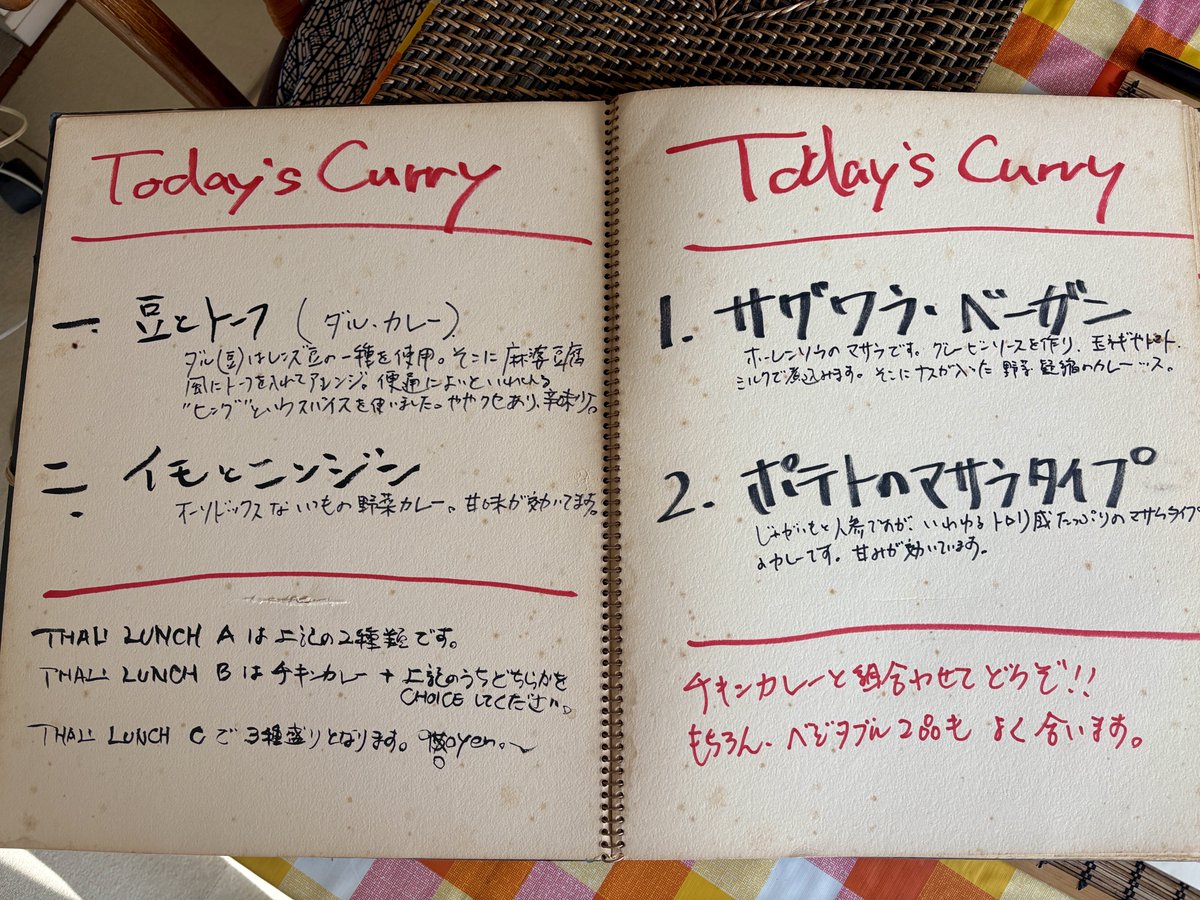 Today's Curry
一. 豆とトーフ (ダル・カレー)
ダル(豆)はレンズ豆の一種を使用。そこに麻婆豆腐
風にトーフを入れてアレンジ。便通によいといわれる
"ヒング"というスパイスを使いました。ややクセあり、辛味少。
二. イモとニンジン
オーソドックスないつもの野菜カレー。甘味が効いてます。
THALI LUNCH A は上記の2種類です。
THALI LUNCH B はチキンカレー + 上記のうちどちらかを
CHOICE してください。
THALI LUNCH C で3種盛りとなります。 yen.
Today's Curry
1. サグワラ・ベーガン
ホーレンソウのマサラです。グレービーソースを作り、玉ネギやトマト、
ミルクで煮込みます。そこにナスが入った野菜凝縮のカレーッス。
2. ポテトのマサラタイプ
じゃがいもと人参ですが、いわゆるトロリ感たっぷりのマサラタイプ
のカレーです。甘みが効いています。
チキンカレーと組合わせてどうぞ!!
もちろん、ベジタブル2品もよく合います。